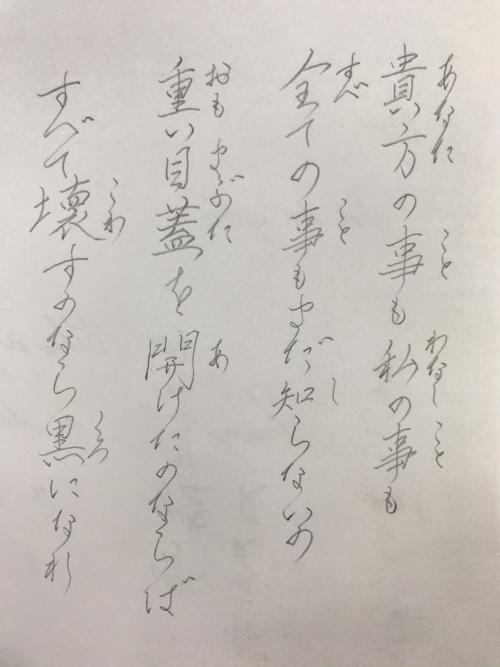 貴方の事も私の事も
あなた こと わたし こと
全ての事もまだ知らないの
すべ こと し
重い目蓋を開けたのならば
おも まぶた あ
すべて壊すのなら黒になれ
こわ くろ